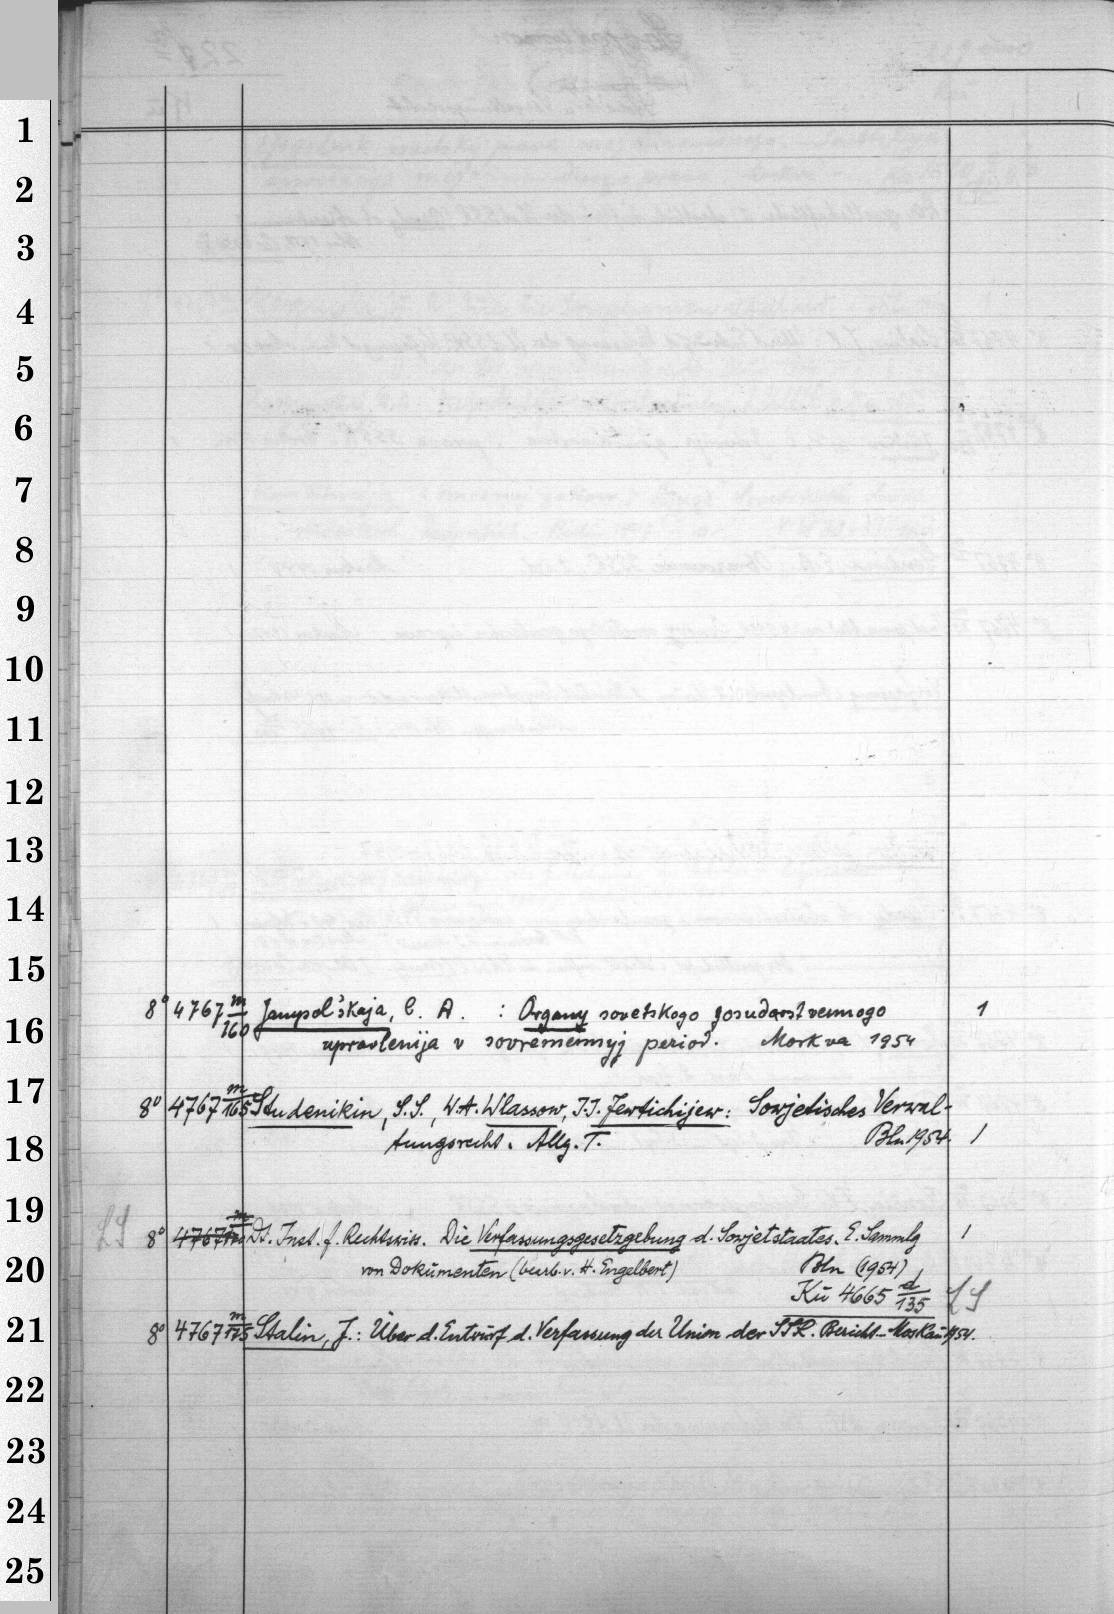 1
2
3
4
5
6
7
8
9
10
11
12
13
14
15
8° 4767 m/160 Jampol'skaja, C. A. : Organy sovetskogo gosudarstvennogo 1
16
upravlenija v sovremennyj period. Moskva 1954
17
8° 4767 m/165 Studenikin, S.S., W.A. Wlassow, I.I. Jewtichijew: Sowjetisches Verwal-
18 tungsrecht. Allg. T. Bln 1954. 1
19
8° 4767 m/170 Dt. Inst. f. Rechtswiss. Die Verfassungsgesetzgebung d. Sowjetstaates. E. Sammlg 1
20 von Dokumenten (bearb. v. H. Engelbert) Bln (1954)
Kü 4665 d/135
21 8° 4767 m/175 Stalin, J.: Über d. Entwurf d. Verfassung der Union der SSR. Bericht_ Moskau 1954.
22
23
24
25